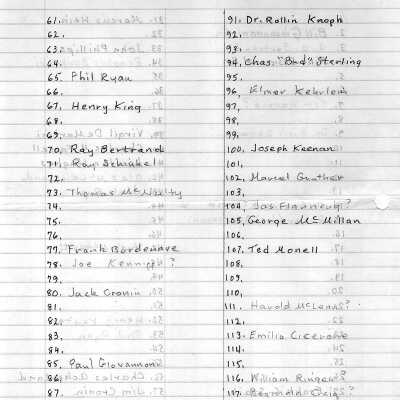 61.
62.
63.
64.
65. Phil Ryan
66.
67. Henry King
68.
69.
70. Ray Bertrand
71. Ray Schinkel
72.
73. Thomas McNulty
74.
75.
76.
77. Frank Bordenave
78. Joe Kenny?
79.
80. Jack Cronin
81.
82.
83.
84.
85. Paul Giovannoni
86.
87.
91. Dr. Rollin Knoph
92.
93.
94. Chas. "Bud" Sterling
95.
96. Elmer
97.
98.
99.
100. Joseph Keenan
101.
102. Marcel
103.
104.
105. George McMillan
106.
107. Ted Monell
108.
109.
110.
111. Harold
112.
113. Emilio
114.
115.
116. William Ringen?
117. Reginald